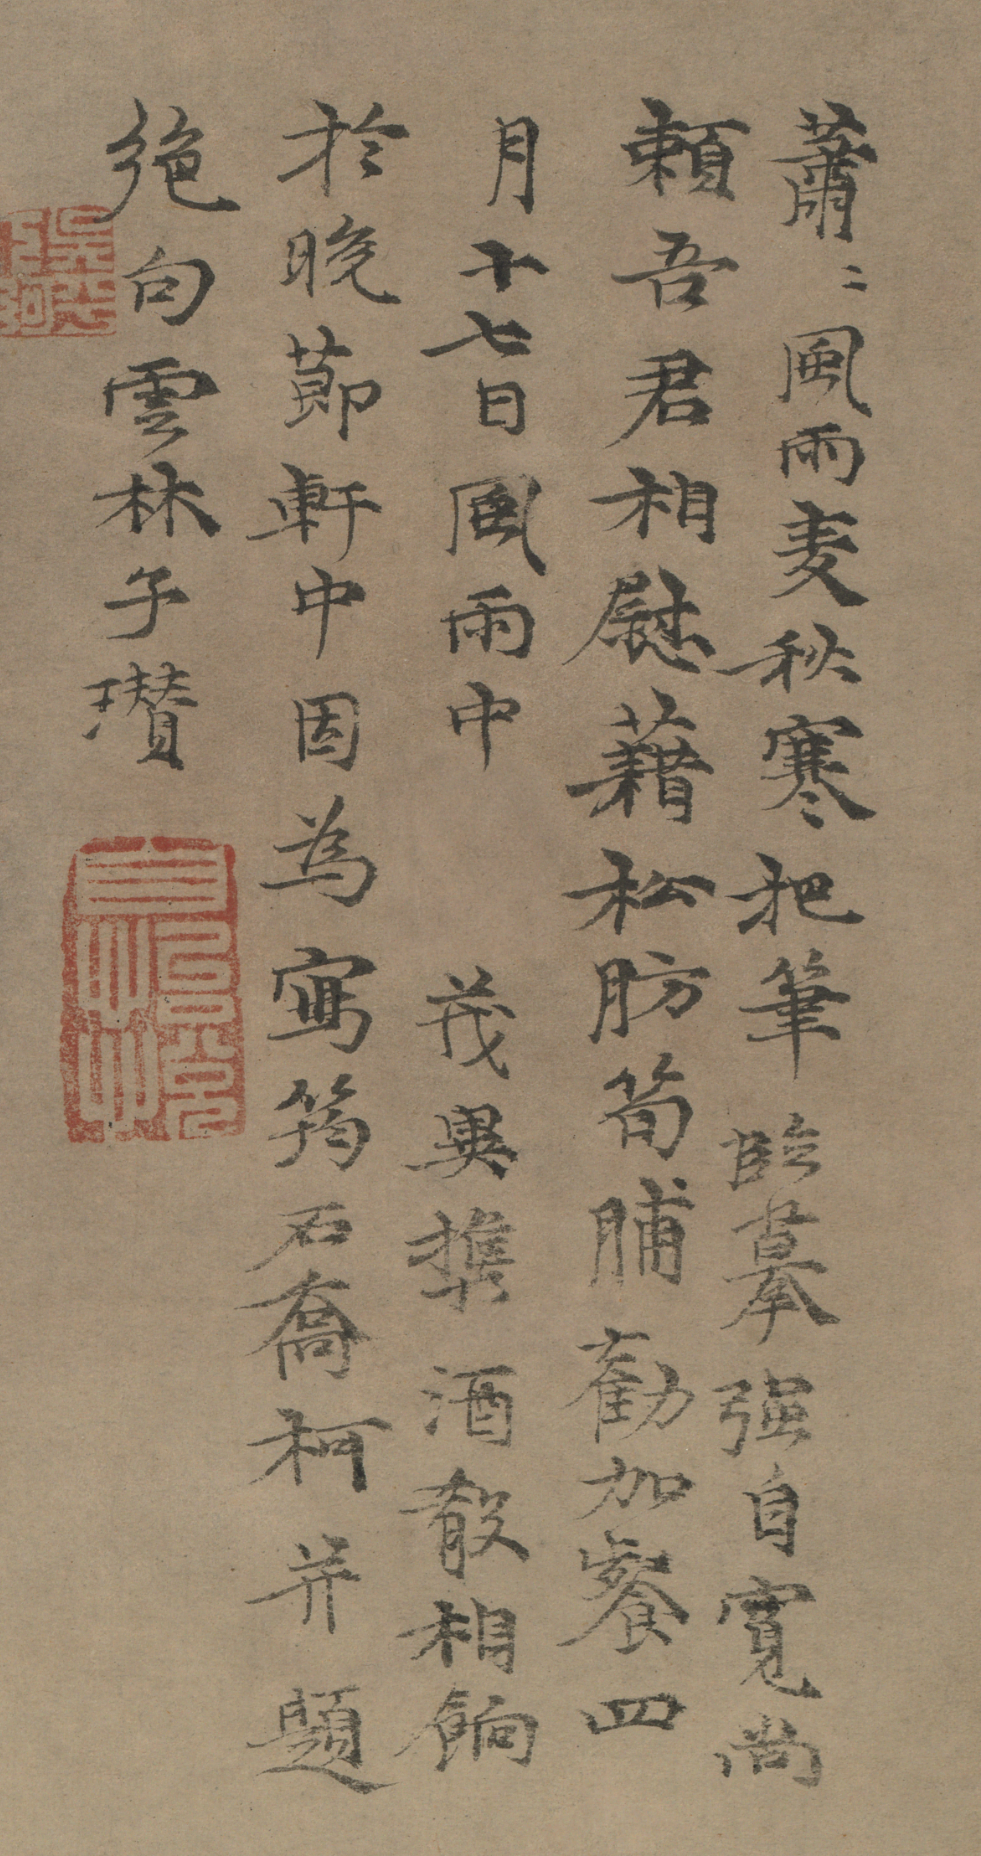 蕭〻風雨麦秋寒把筆臨摹強自寬尚
賴吾君相慰藉松肪筍脯勸加餐四
月十七日風雨中 茂異携酒殽相餉
於晚節軒中因為寫筠石喬柯并題
絶句雲林子瓚